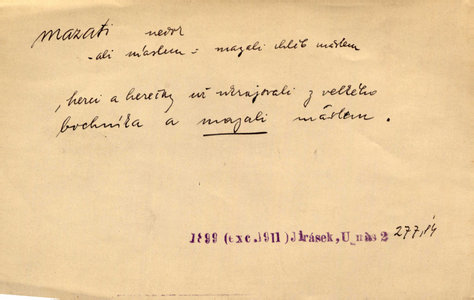 mazati nedok
-ali máslem - mazali chléb máslem
, herci a herečky už ukrajovali z velkého
bochníka a mazali máslem.
1899 (exc.1911) Jirásek, U nás 2 277,14